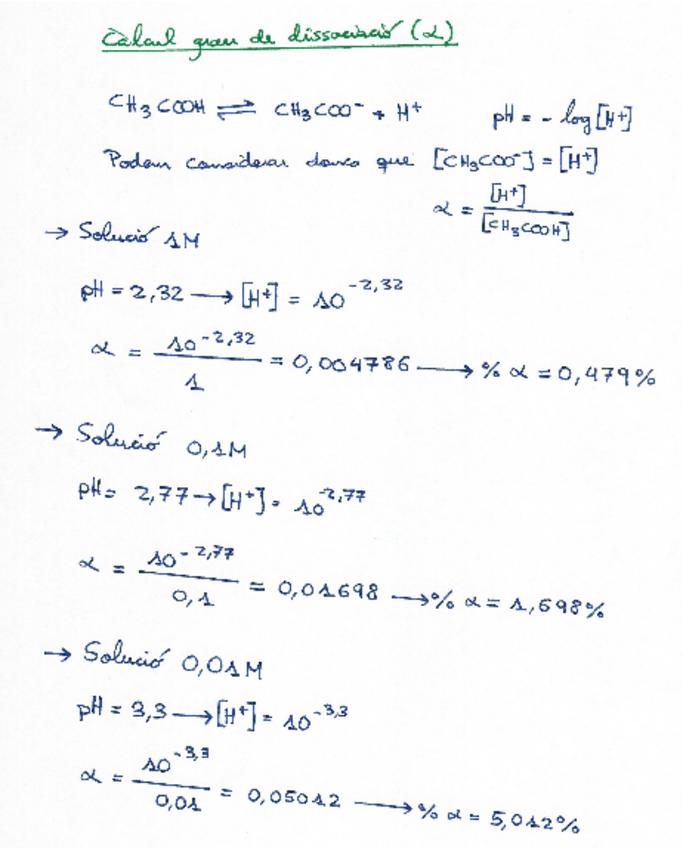 Càlcul grau de dissociació (α)
CH3COOH ⇌ CH3COO⁻ + H⁺ pH = - log [H⁺]
Podem considerar doncs que [CH3COO⁻] = [H⁺]
α = [H⁺] / [CH3COOH]
→ Solució 1M
pH = 2,32 → [H⁺] = 10^-2,32
α = 10^-2,32 / 1 = 0,004786 → % α = 0,479%
→ Solució 0,1M
pH = 2,77 → [H⁺] = 10^-2,77
α = 10^-2,77 / 0,1 = 0,01698 → % α = 1,698%
→ Solució 0,01M
pH = 3,3 → [H⁺] = 10^-3,3
α = 10^-3,3 / 0,01 = 0,05012 → % α = 5,012%